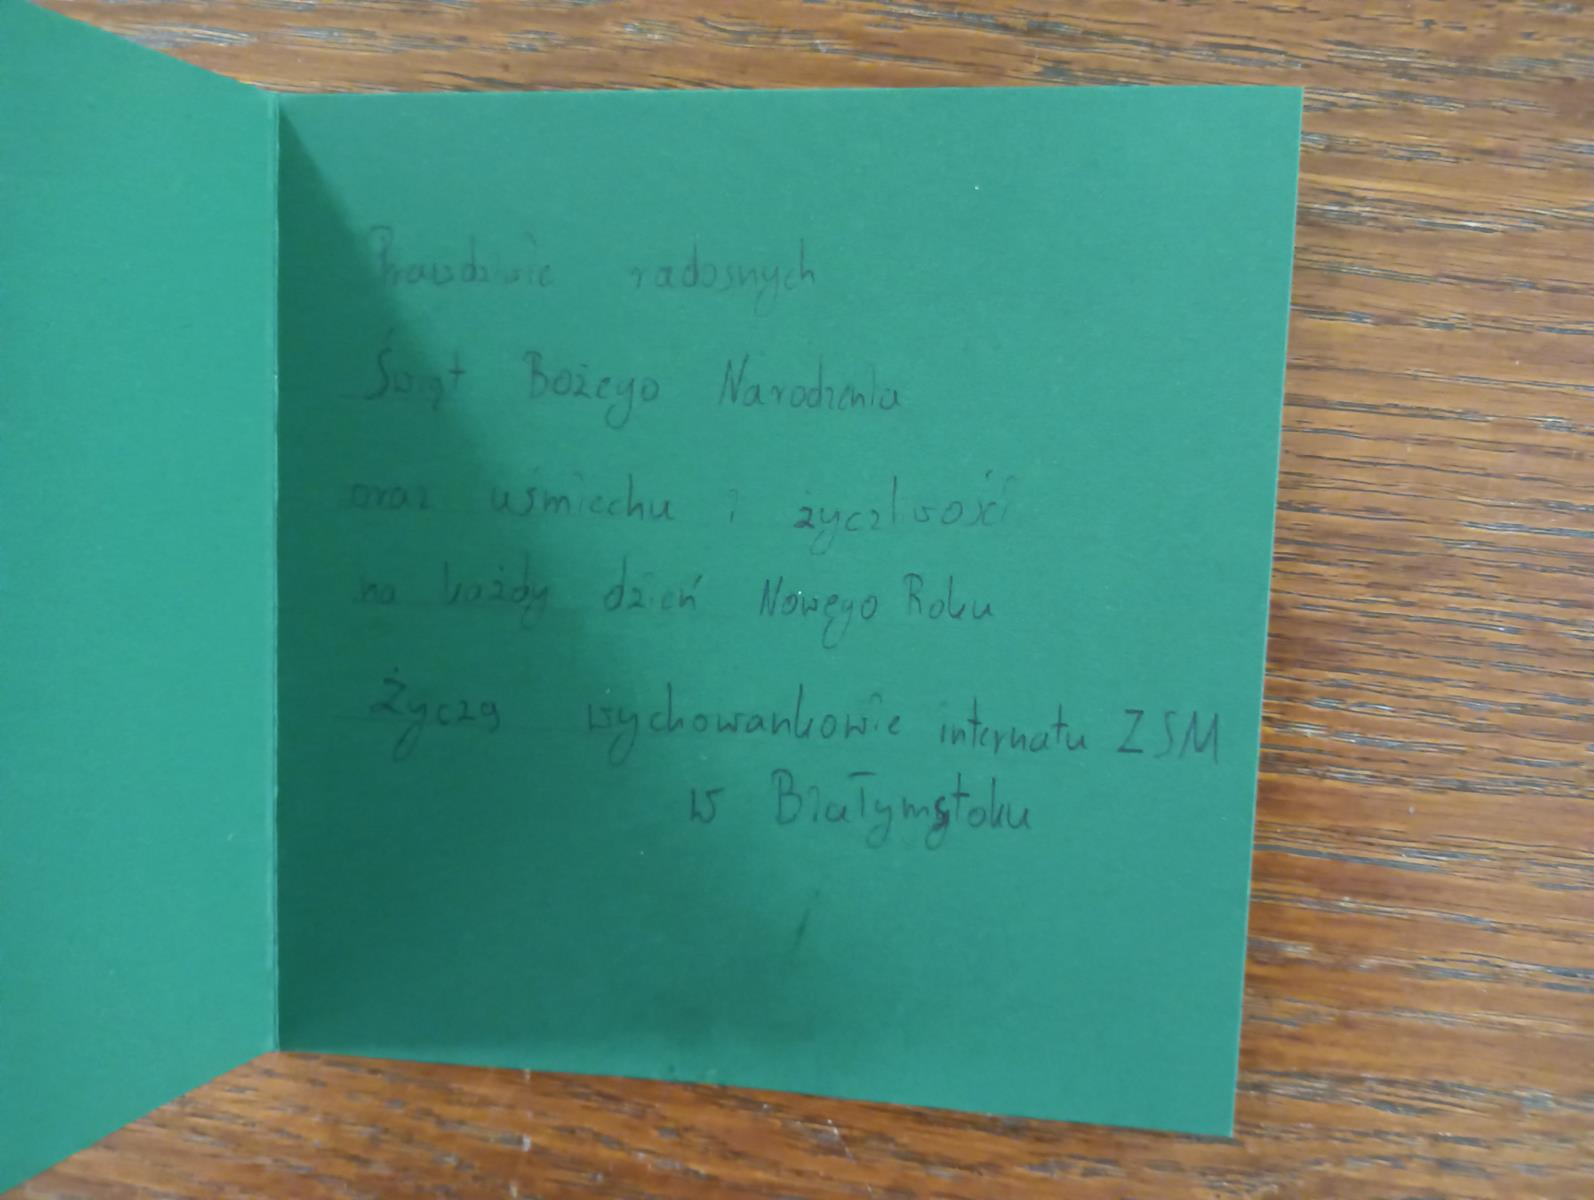 Prawdziwie radosnych
Świąt Bożego Narodzenia
oraz uśmiechu i życzliwości
na każdy dzień Nowego Roku
Życzą wychowankowie internatu ZSM
w Białymstoku